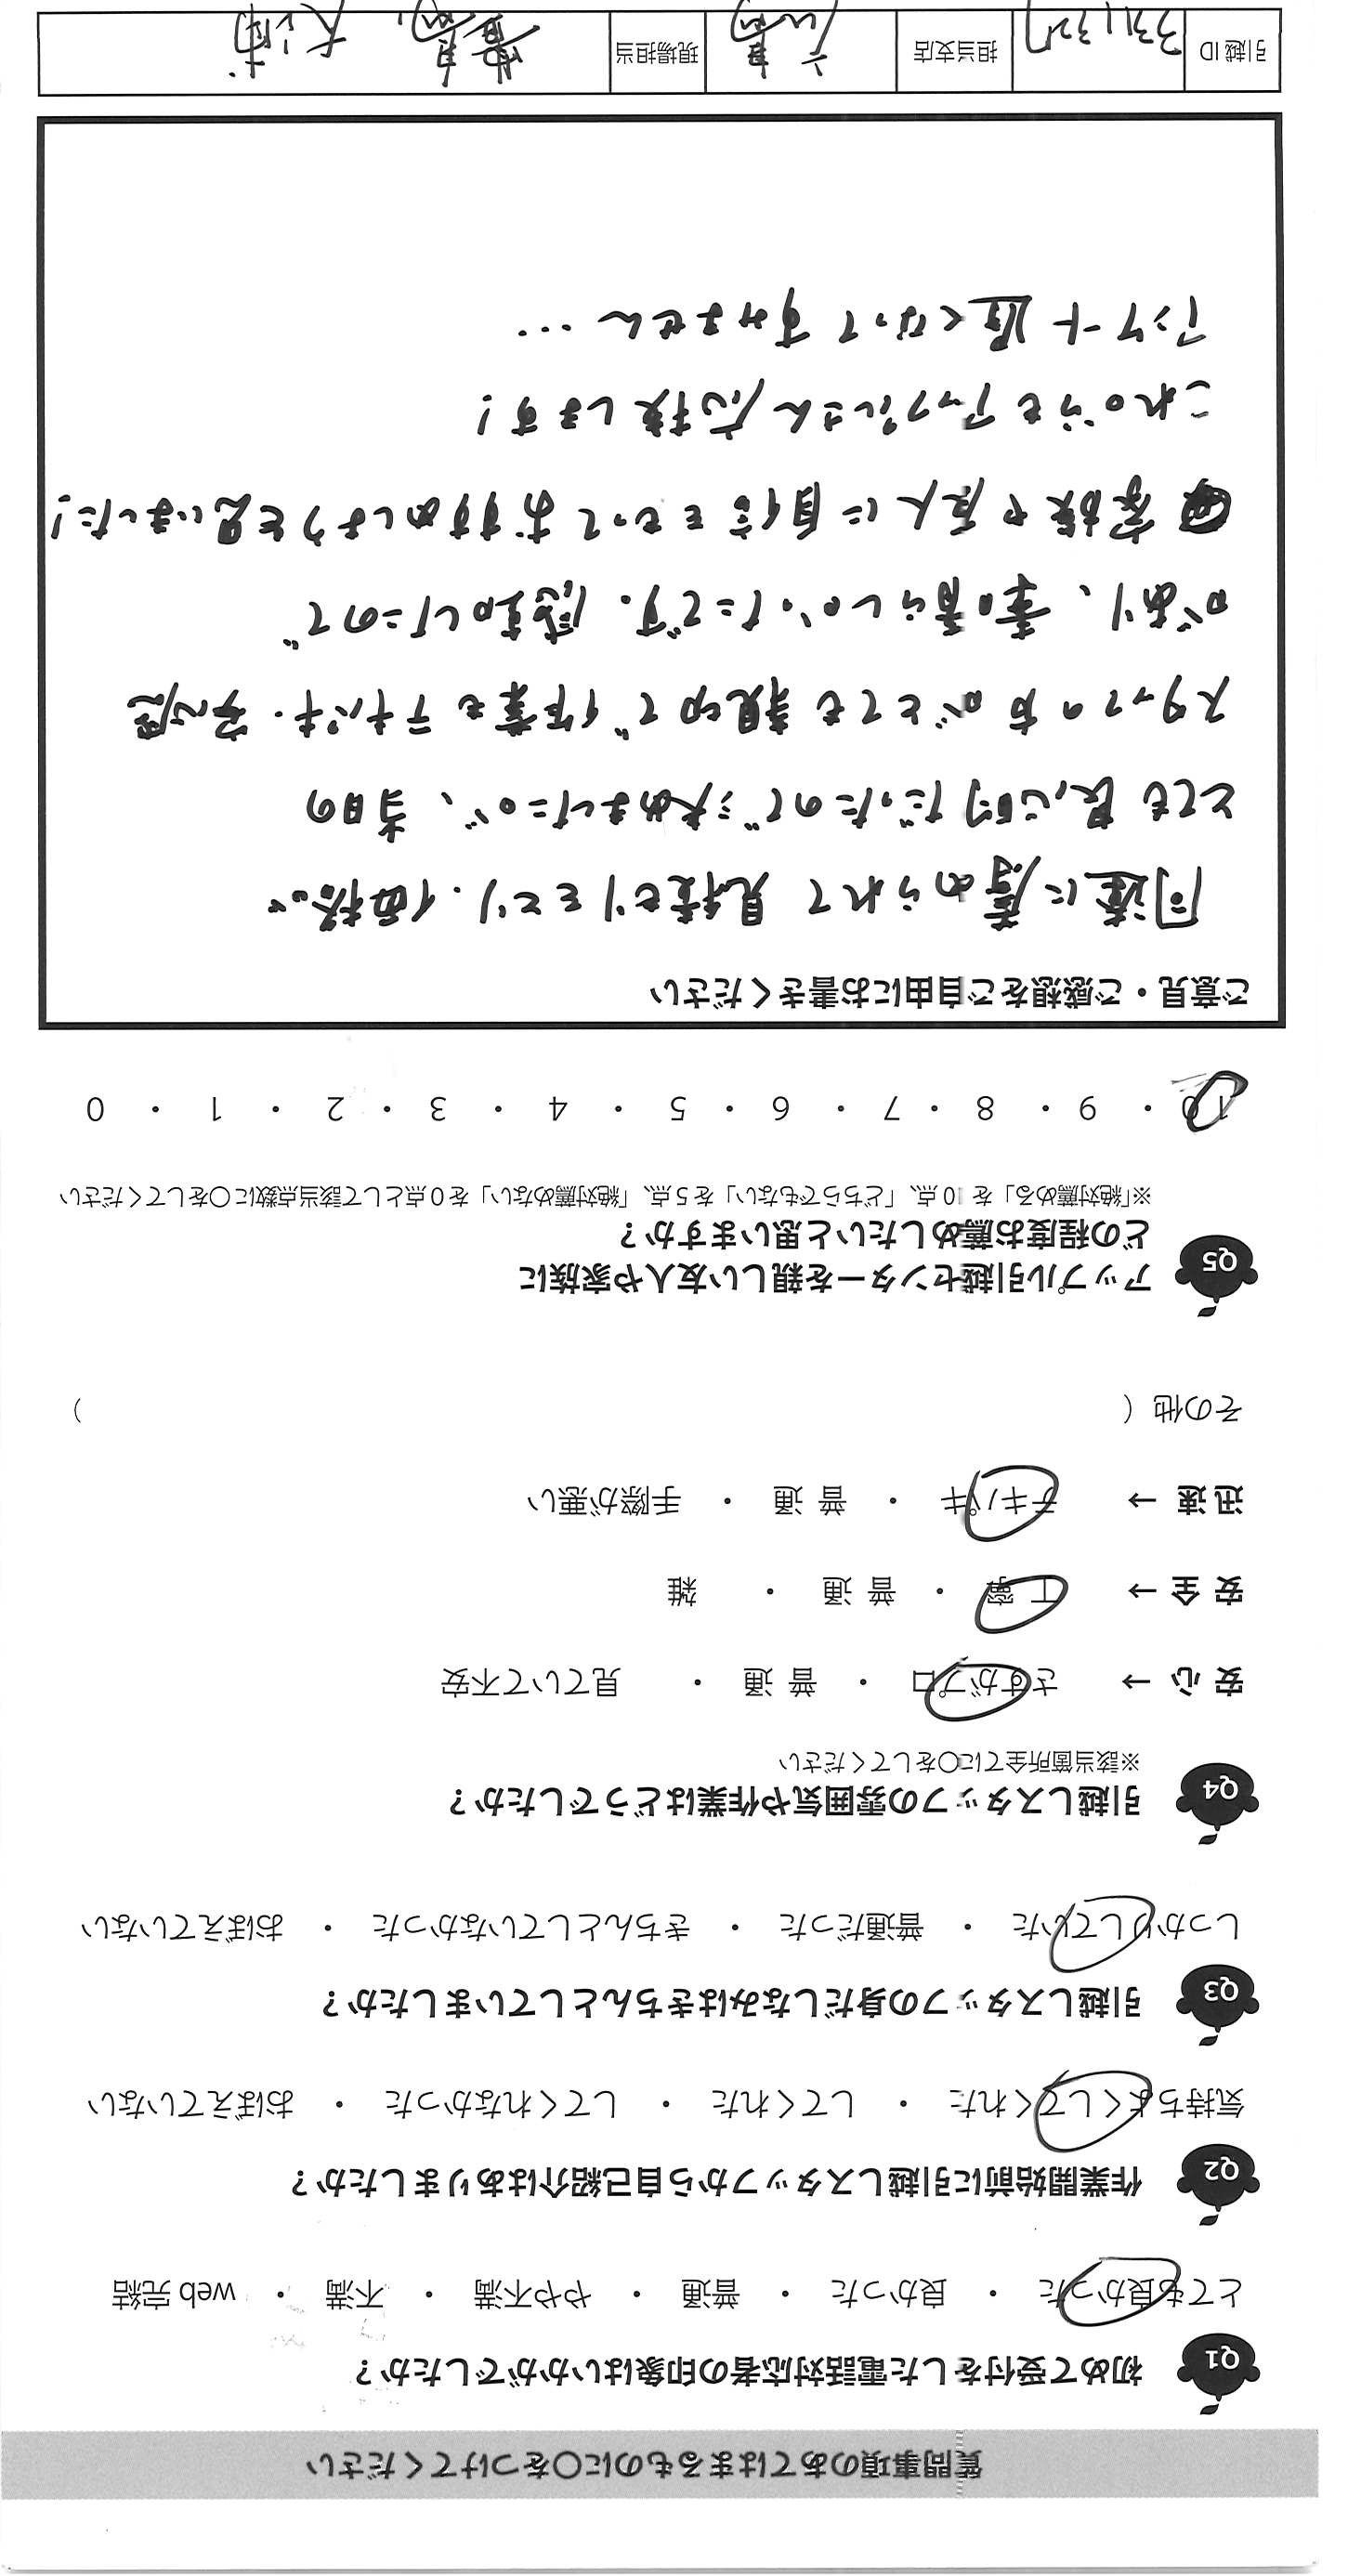 質問事項のあてはまるものに〇をつけてください
Q1 初めて受付をした電話対応者の印象はいかがでしたか？
とても良かった ・ 良かった ・ 普通 ・ やや不満 ・ 不満 ・ web 完結
Q2 作業開始前に引越しスタッフから自己紹介はありましたか？
気持ちよくしてくれた ・ してくれた ・ してくれなかった ・ おぼえていない
Q3 引越しスタッフの身だしなみはきちんとしていましたか？
しっかりしていた ・ 普通だった ・ きちんとしていなかった ・ おぼえていない
Q4 引越しスタッフの雰囲気や作業はどうでしたか？
※該当箇所全てに〇をしてください
安心→ さすがプロ ・ 普通 ・ 見ていて不安
安全→ 丁寧 ・ 普通 ・ 雑
迅速→ テキパキ ・ 普通 ・ 手際が悪い
その他（ ）
Q5 アップル引越センターを親しい友人や家族に
どの程度お薦めしたいと思いますか？
※「絶対薦める」を10点、「どちらでもない」を5点、「絶対薦めない」を0点として該当点数に〇をしてください
10 ・ 9 ・ 8 ・ 7 ・ 6 ・ 5 ・ 4 ・ 3 ・ 2 ・ 1 ・ 0
ご意見・ご感想をご自由にお書きください
同僚に薦められて見積もりをとり、価格が
とても良心的だったので決めましたが、当日の
スタッフの方がとても親切で作業もテキパキ・安心感
があり、素晴らしかったです。感動したので
家族や友人に自信をもっておすすめしようと思いました！
これからもアップルさん応援します！
アンケート遅くなってすみません…
引越 ID 担当支店 現場担当